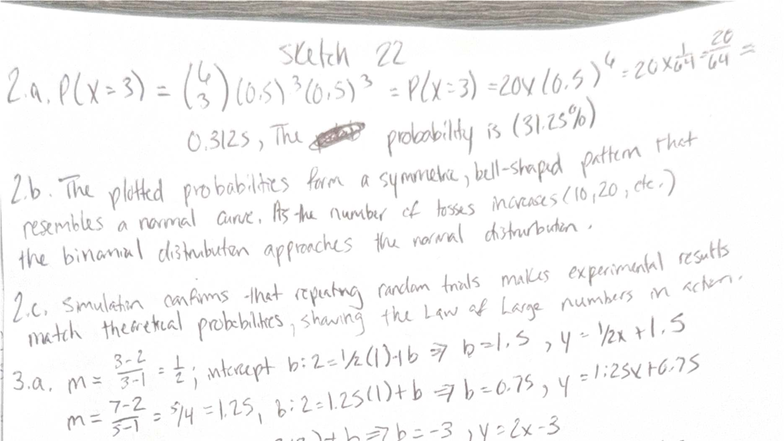 sketch 22
2.a. P(X=3) = (6 3)(0.5)³(0.5)³ = P(X=3) = 20x(0.5)⁶ = 20x1/64 = 20/64 =
0.3125, The probability is (31.25%)
2.b. The plotted probabilities form a symmetric, bell-shaped pattern that
resembles a normal curve. As the number of tosses increases (10, 20, etc.)
the binomial distribution approaches the normal distribution.
2.c. Simulation confirms that repeating random trials makes experimental results
match theoretical probabilities, showing the Law of Large numbers in action.
3.a. m = 3-2/3-1 = 1/2; intercept b: 2=1/2(1)+b ⇒ b=1.5, y = 1/2x + 1.5
m = 7-2/5-1 = 5/4 = 1.25, b: 2=1.25(1)+b ⇒ b=0.75, y = 1.25x+0.75
)+b ⇒ b=-3, y=2x-3